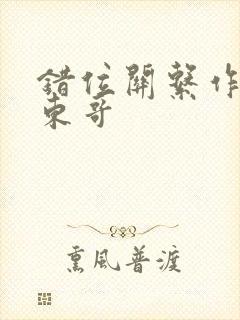 錯位關繫作
東哥
熏風普渡